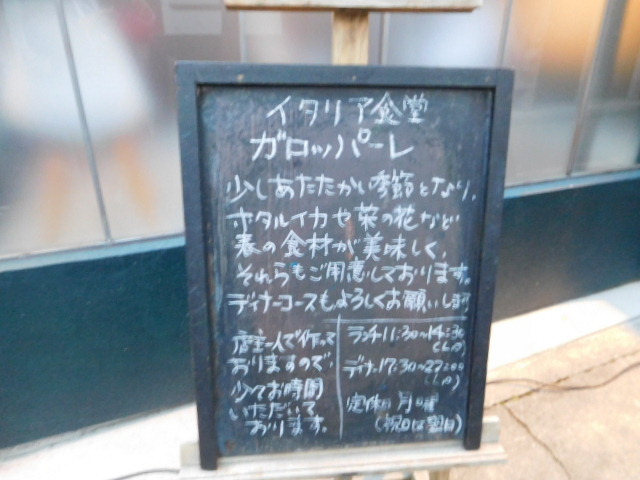 イタリア食堂
ガロッパーレ
少しあたたかい季節となり、
ホタルイカや菜の花など
春の食材が美味しく、
それらもご用意しております。
ディナーコースもよろしくお願いします
店主一人で作って
おりますので、
少々お時間
いただいて
おります。
ランチ11:30~14:30
(L.O)
ディナ17:30~22:00
(L.O)
定休日 月曜
(祝日は翌日)